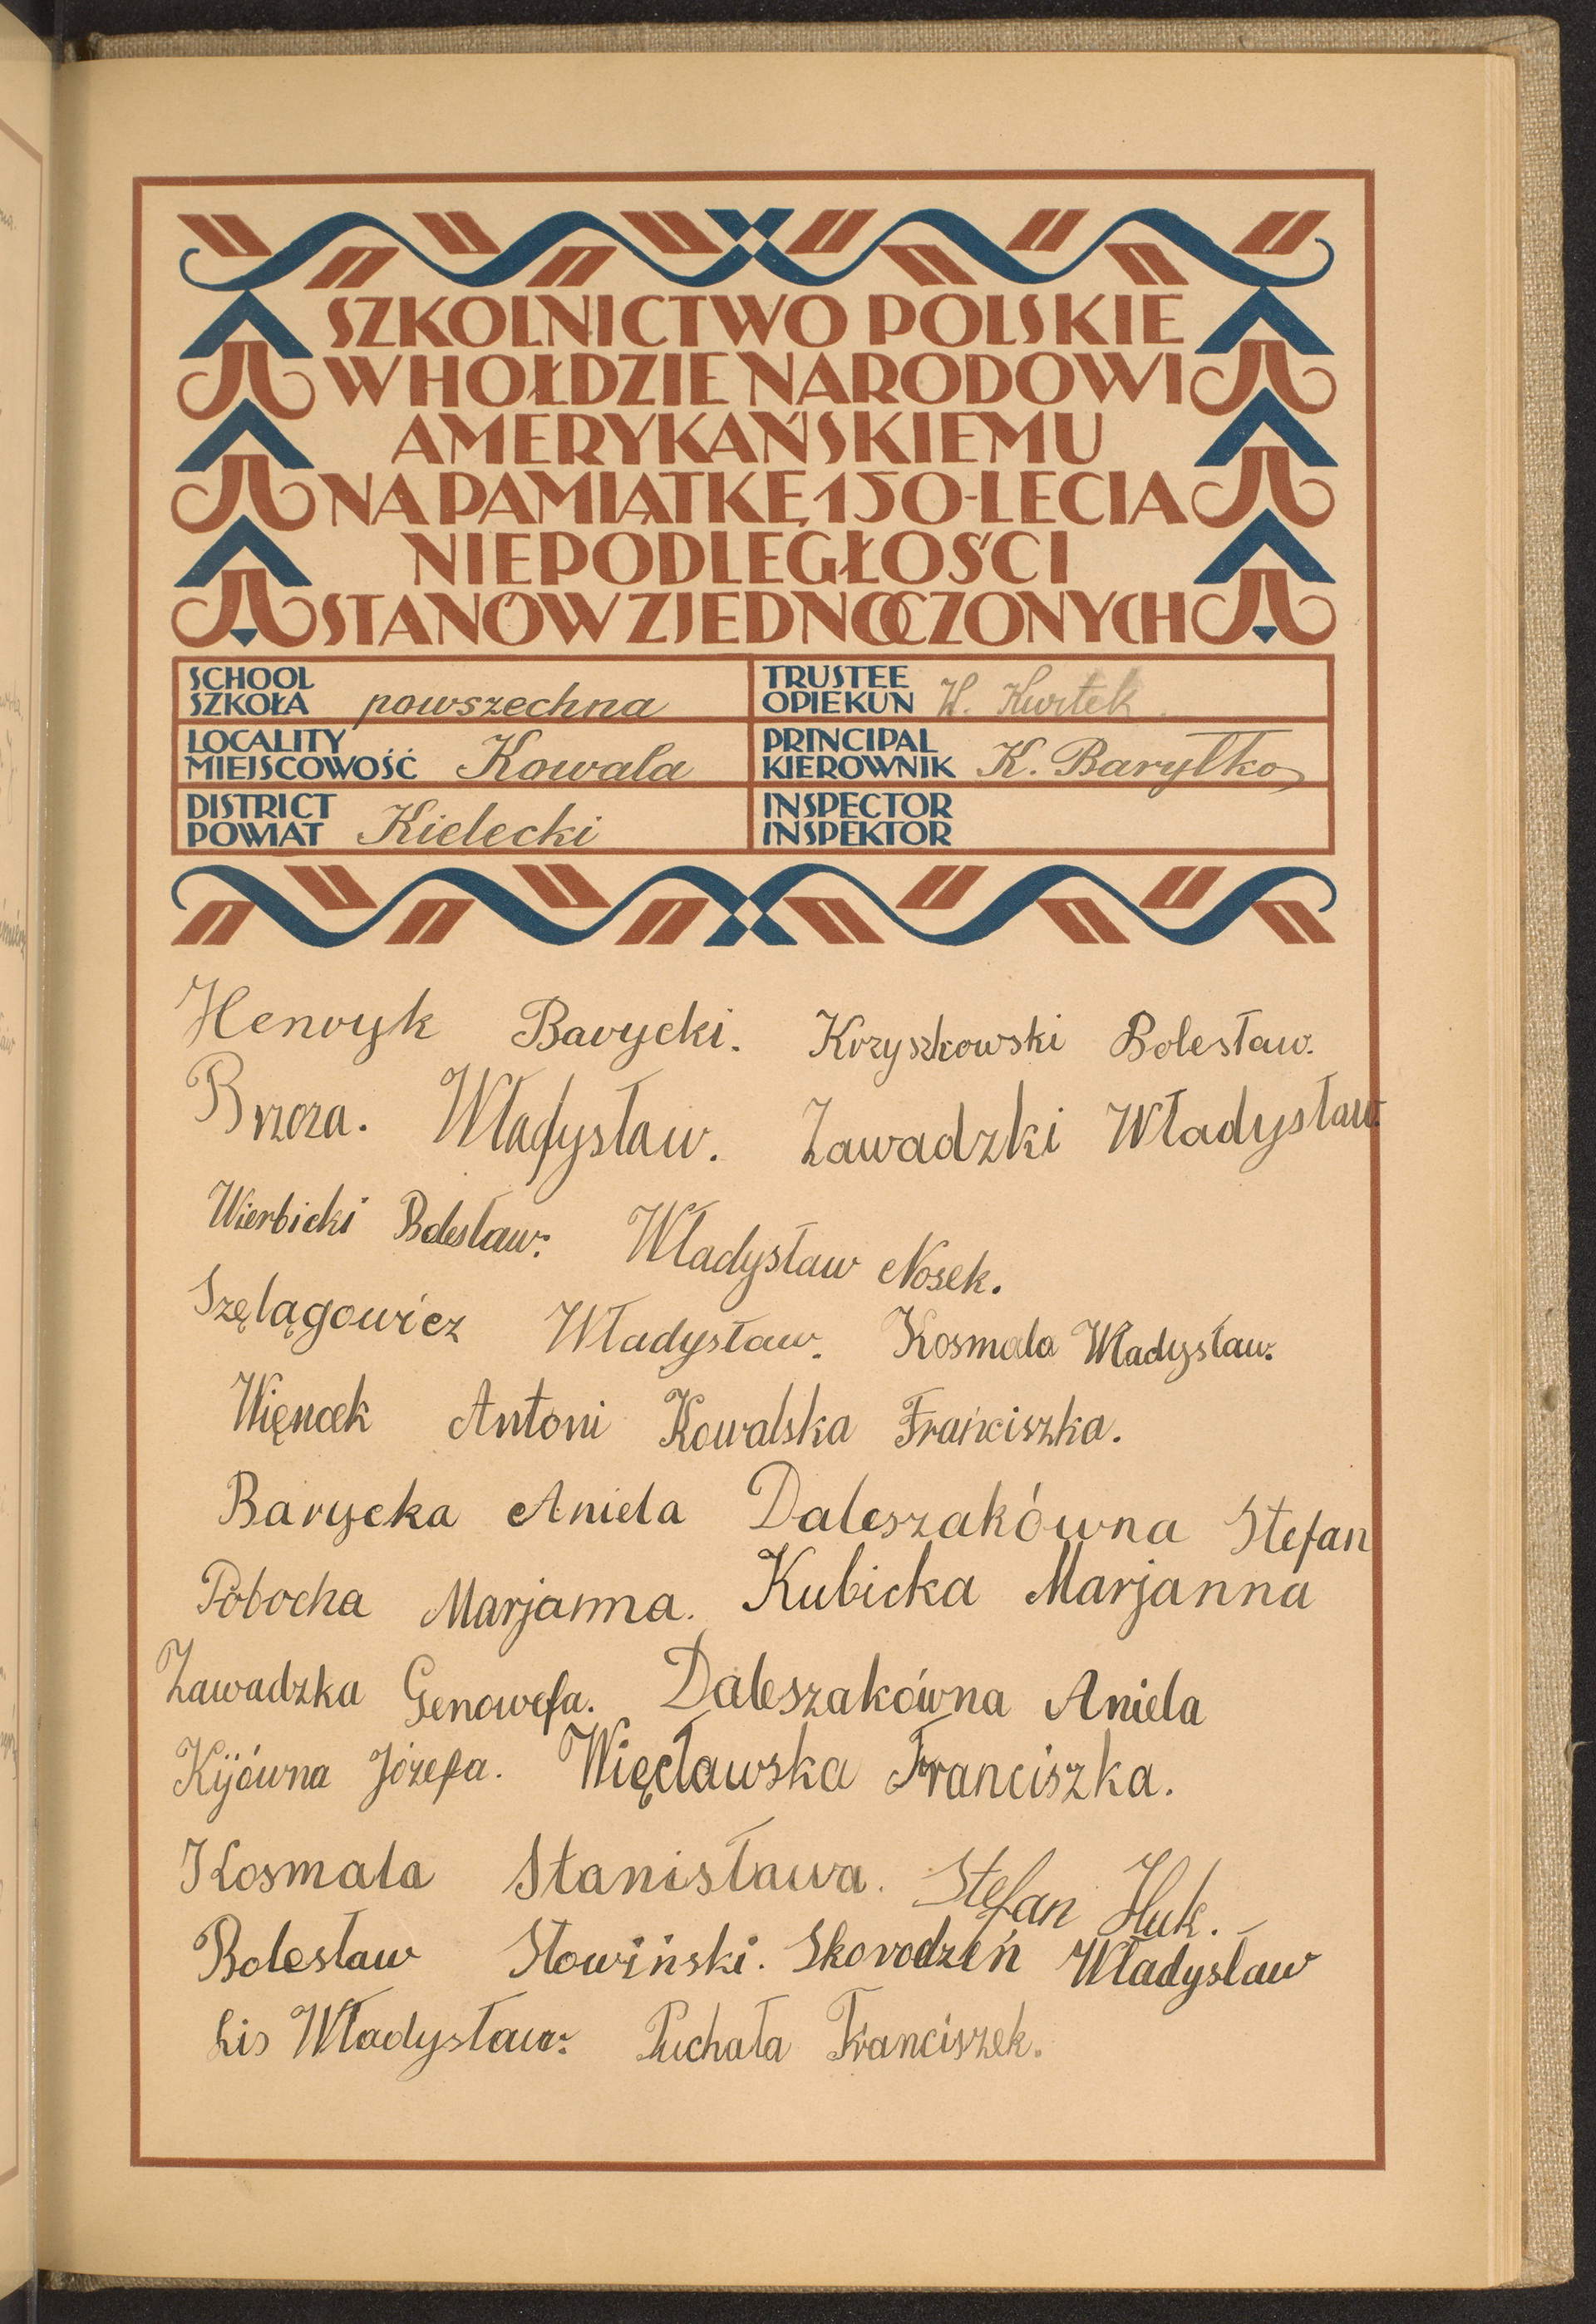 SZKOLNICTWO POLSKIE
W HOŁDZIE NARODOWI
AMERYKAŃSKIEMU
NA PAMIĄTKĘ 150-LECIA
NIEPODLEGŁOŚCI
STANÓW ZJEDNOCZONYCH
SCHOOL
SZKOŁA powszechna
TRUSTEE
OPIEKUN W. Kurtek.
LOCALITY
MIEJSCOWOŚĆ Kowala
PRINCIPAL
KIEROWNIK K. Baryłko
DISTRICT
POWIAT Kielecki
INSPECTOR
INSPEKTOR
Henryk Barycki. Krzyszkowski Bolesław.
Brzoza. Władysław. Zawadzki Władysław.
Wierbicki Bolesław. Władysław Nosek.
Szęlągowicz Władysław. Kosmala Władysław.
Więncek Antoni Kowalska Frańciszka.
Barycka Aniela Daleszakówna Stefan
Pobocha Marjanna. Kubicka Marjanna
Zawadzka Genowefa. Daleszakówna Aniela
Kijówna Józefa. Więcławska Franciszka.
Kosmala Stanisława. Stefan Huk.
Bolesław Słowiński. Skorodzeń Władysław
Lis Władysław. Puchała Franciszek.